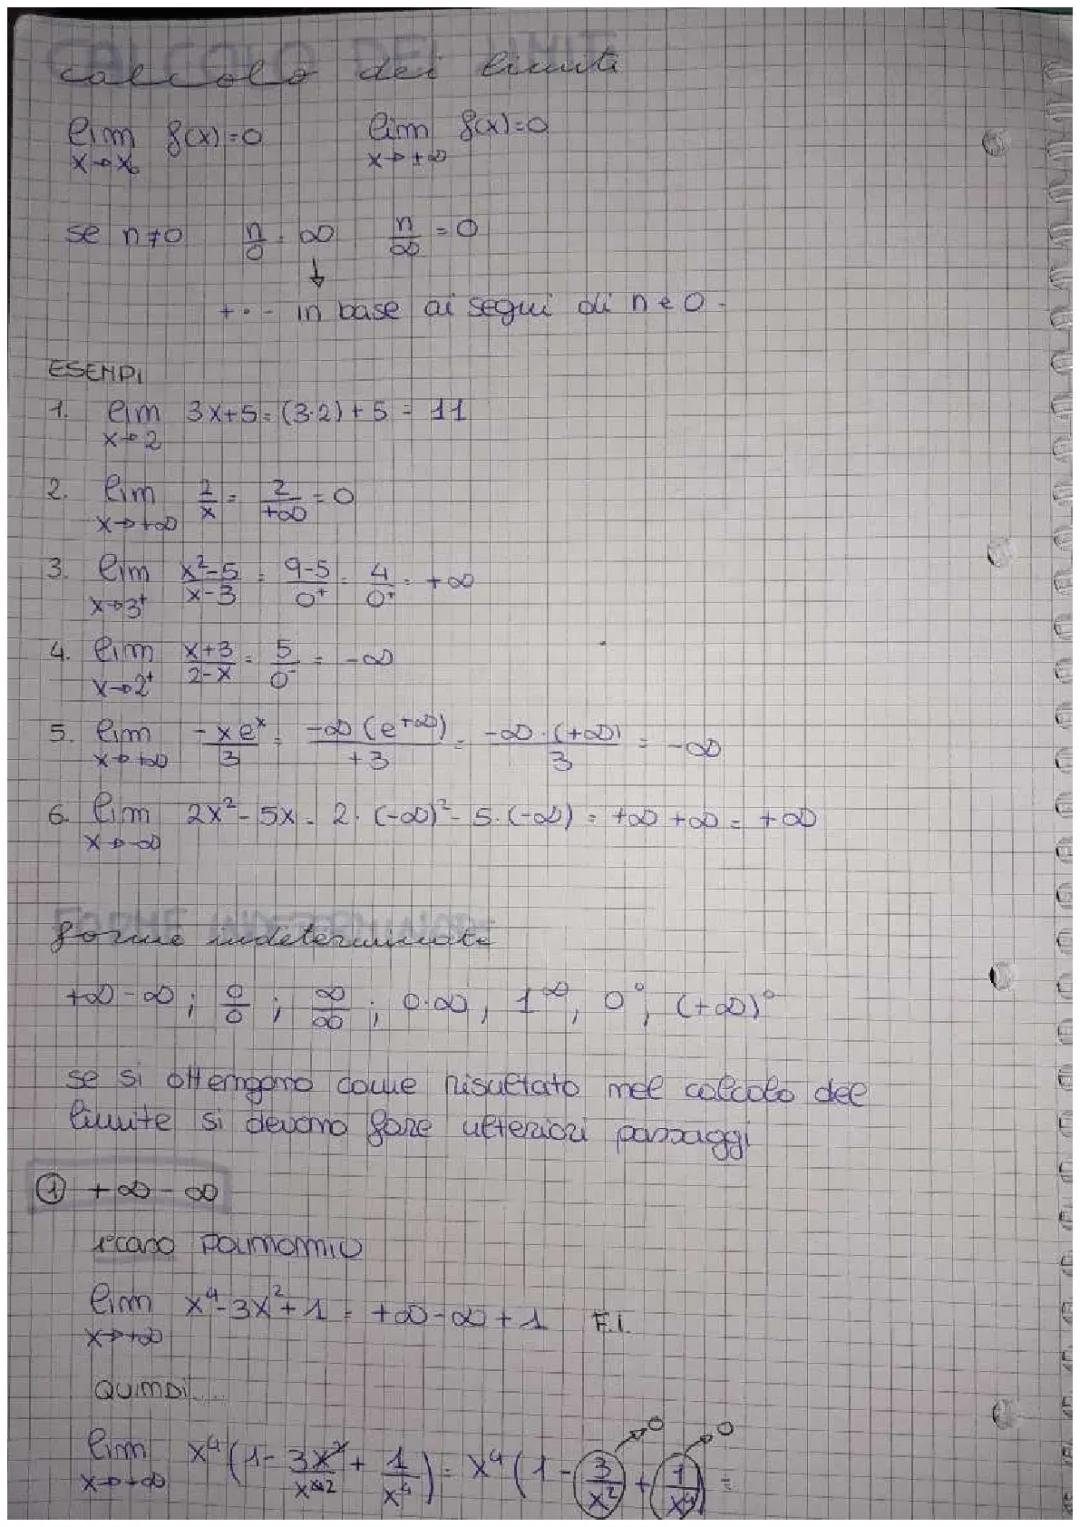 calcolo dei limiti
lim f(x)=0 lim f(x)=0
x→x₀ x→+∞
se n≠0 n/0 = ∞ n/∞ = 0
↓
+ o - in base ai segni di n e 0.
ESEMPI
1. lim 3x+5 = (3·2)+5 = 11
x→2
2. lim 2/x = 2/+∞ = 0
x→+∞
3. lim x²-5/x-3 = 9-5/0⁺ = 4/0⁺ = +∞
x→3⁺
4. lim x+3/2-x = 5/0⁻ = -∞
x→2⁺
5. lim -xeˣ/3 = -∞(e^+∞)/+3 = -∞·(+∞)/3 = -∞
x→+∞
6. lim 2x²-5x = 2·(-∞)²-5·(-∞) = +∞+∞ = +∞
x→-∞
forme indeterminate
+∞-∞; 0/0; ∞/∞; 0·∞, 1^∞, 0⁰, (+∞)⁰
se si ottengono come risultato nel calcolo del
limite si devono fare ulteriori passaggi
① +∞-∞
1°caso POLINOMIO
lim x⁴-3x²+1 = +∞-∞+1 F.I.
x→+∞
QUINDI...
0 0
lim x⁴(1-3x²/x⁴²+1/x⁴) = x⁴(1-3/x²+1/x⁴) =
x→+∞